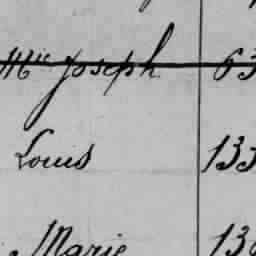 Mie Joseph 63
Louis 133
Marie 13